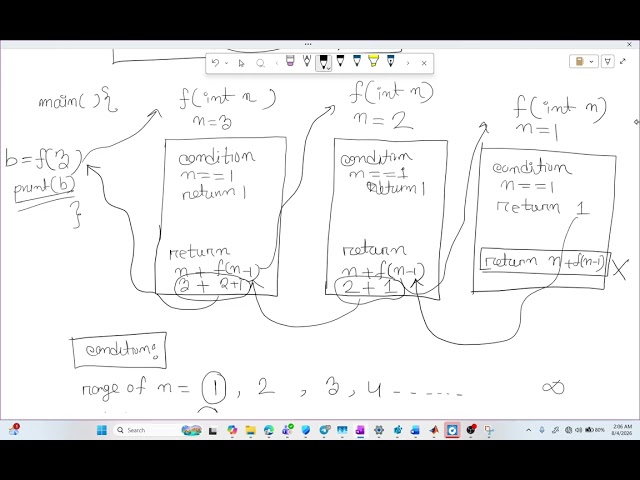 main( ){
b = f(3)
print(b)
}
f(int n )
n=3
condition
n==1
return 1
return
n + f(n-1)
3 + 2+1
f(int n)
n = 2
condition
n==1
return 1
return
n + f(n-1)
2 + 1
f(int n)
n = 1
condition
n==1
return 1
return n + f(n-1)
X
condition:
range of n = 1, 2 , 3, 4 - - - - - - ∞
Search
80%
2:06 AM
8/4/2026